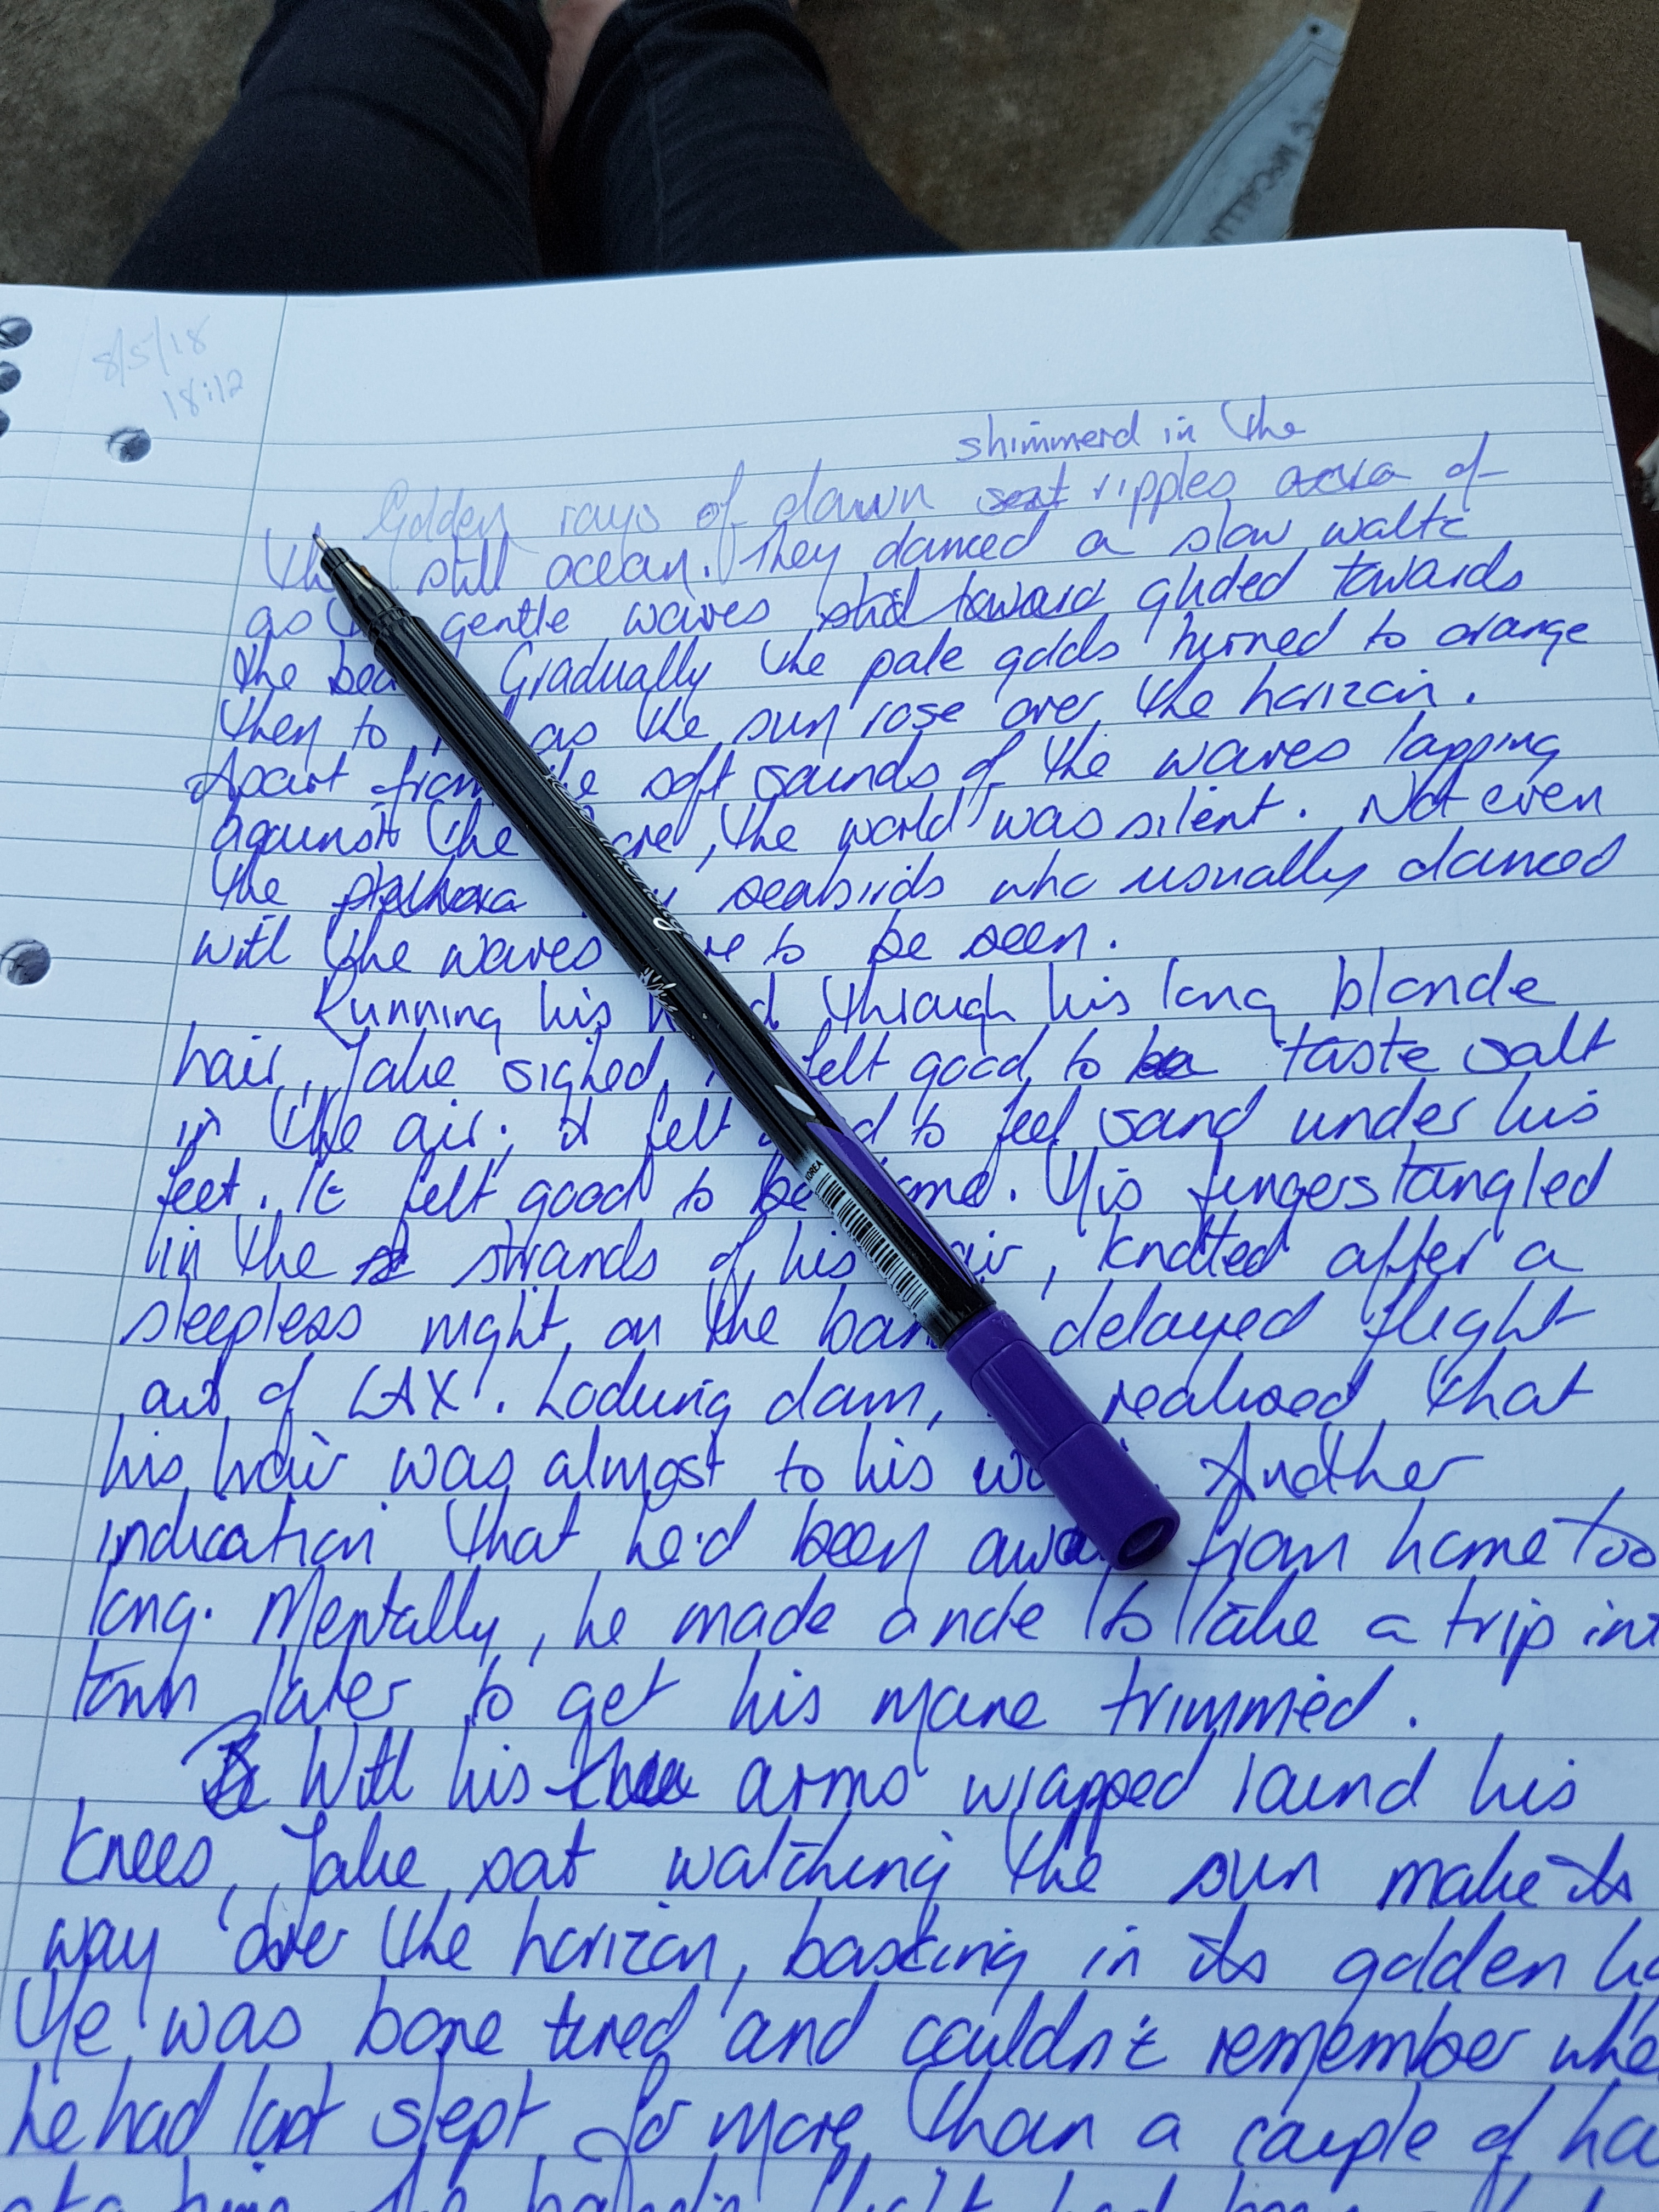 8/5/18
18:12
shimmerd in the
Golden rays of dawn sent ripples across of
the still ocean. They danced a slow waltz
as gentle waves slid toward glided towards
the Gradually the pale golds turned to orange
then to as the sun rose over the horizon.
Apart from the soft sounds of the waves lapping
against the the world was silent. Not even
the plethora seabirds who usually danced
with the waves to be seen.
Running his through his long blonde
hair, Jake sighed. felt good to be taste salt
in the air; it felt to feel sand under his
feet. It felt good to be His fingers tangled
in the strands of his knotted after a
sleepless night on the delayed flight
out of LAX. Looking down, realised that
his hair was almost to his Another
indication that he'd been away from home too
long. Mentally, he made a note to take a trip
town later to get his mane trimmed.
With his arms wrapped round his
knees, Jake sat watching the sun make its
way over the horizon, basking in its golden
He was bone tired and couldn't remember
he had last slept for more than a couple of
KOREA